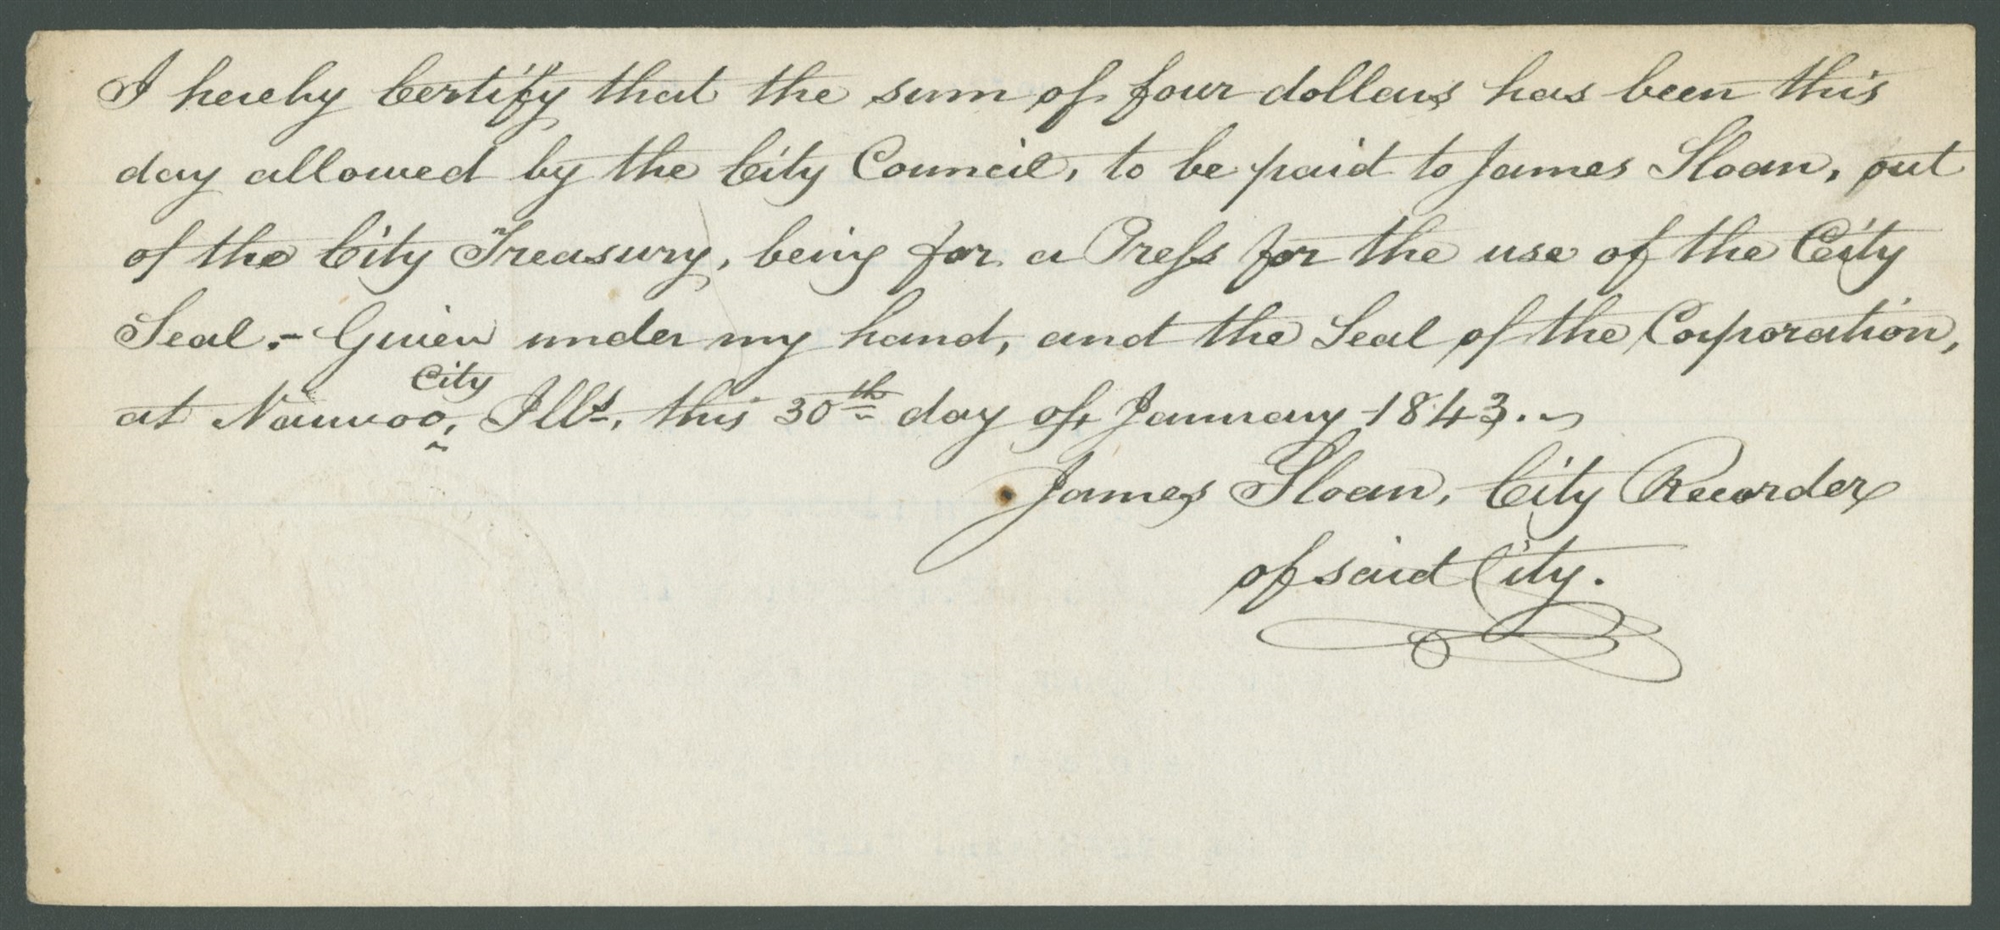 I hereby Certify that the sum of four dollars has been this
day allowed by the City Council, to be paid to James Sloan, out
of the City Treasury, being for a Press for the use of the City
Seal.- Given under my hand, and the Seal of the Corporation,
City
at Nauvoo, Ills, this 30th day of January 1843.
James Sloan, City Recorder
of said City.